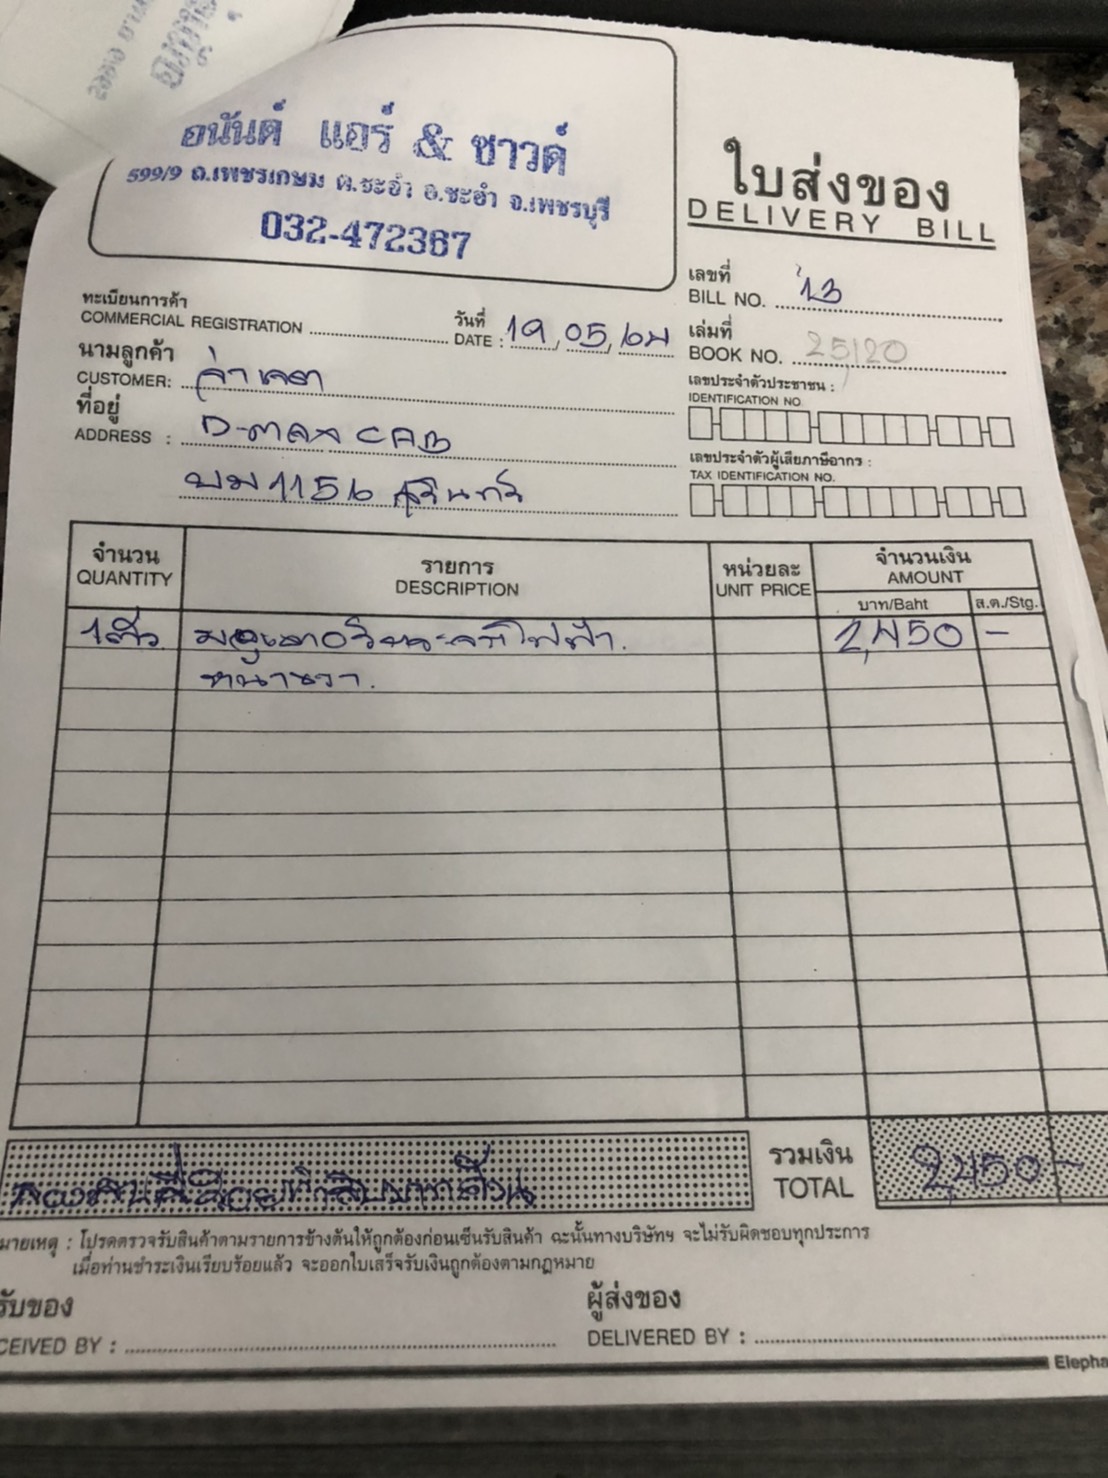 อนันต์ แอร์ & ซาวด์
599/9 ถ.เพชรเกษม ต.ชะอำ อ.ชะอำ จ.เพชรบุรี
032-472367
ใบส่งของ
DELIVERY BILL
เลขที่
BILL NO. 13
ทะเบียนการค้า
COMMERCIAL REGISTRATION
วันที่
DATE : 19, 05,
เล่มที่
BOOK NO. 25/20
นามลูกค้า
CUSTOMER:
เลขประจำตัวประชาชน :
IDENTIFICATION NO.
ที่อยู่
ADDRESS : D-MAX CAB
1156 สุรินทร์
เลขประจำตัวผู้เสียภาษีอากร :
TAX IDENTIFICATION NO.
จำนวน
QUANTITY
รายการ
DESCRIPTION
หน่วยละ
UNIT PRICE
จำนวนเงิน
AMOUNT
บาท/Baht
ส.ต./Stg.
1 ตัว ไฟฟ้า. 2,450 -
รวมเงิน
TOTAL
2,450 -
มายเหตุ : โปรดตรวจรับสินค้าตามรายการข้างต้นให้ถูกต้องก่อนเซ็นรับสินค้า ฉะนั้นทางบริษัทฯ จะไม่รับผิดชอบทุกประการ
เมื่อท่านชำระเงินเรียบร้อยแล้ว จะออกใบเสร็จรับเงินถูกต้องตามกฎหมาย
รับของ
CEIVED BY :
ผู้ส่งของ
DELIVERED BY :
Elepha